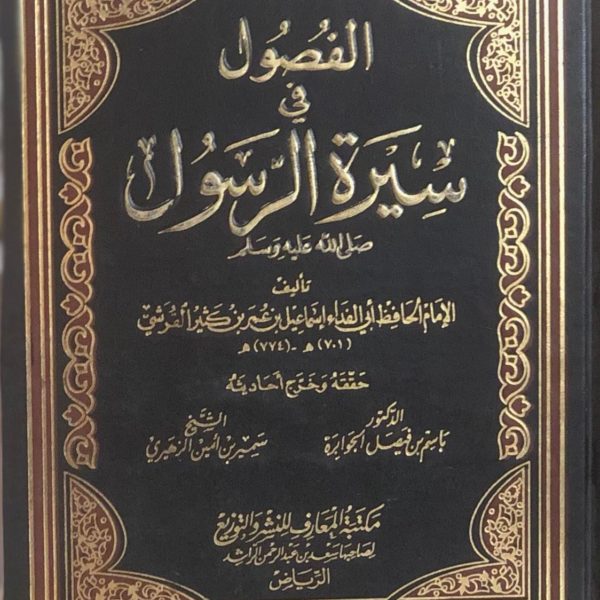 الفُصُول
في
سِيرَة الرَّسُول
صَلى الله عَليْه وَسَلم
تأليف
الإمَام الحَافِظ أبي الفِداء إسمَاعيل بن عُمَر بن كَثير القُرشي
(٧٠١) هـ - (٧٧٤) هـ
حَقّقَهُ وَخَرّجَ أحَاديثَه
الدكتور الشَّيْخ
بَاسِم بن فَيصَل الجوابرة سَمير بن أمين الزهيري
مكتَبة المعَارف للنشِر والتوزيع
لِصَاحِبهَا سَعد بن عَبد الرحمن الراشِد
الريَاض